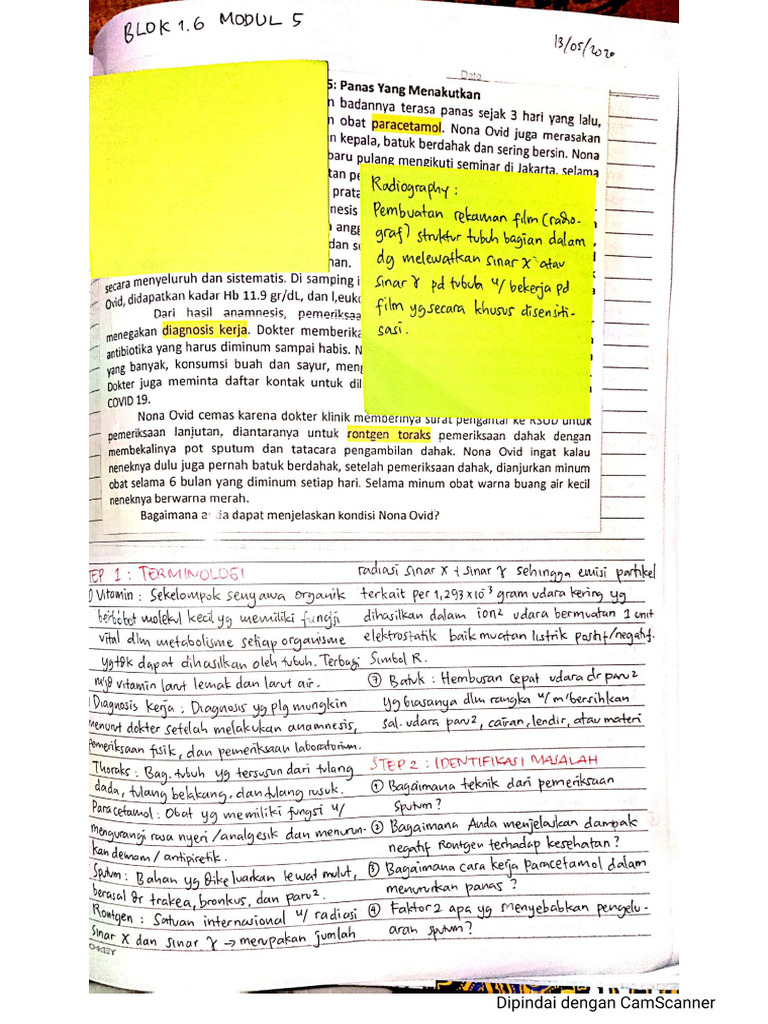 BLOK 1.6 MODUL 5
13/05/2020
Date
5: Panas Yang Menakutkan
n badannya terasa panas sejak 3 hari yang lalu,
n obat paracetamol. Nona Ovid juga merasakan
n kepala, batuk berdahak dan sering bersin. Nona
baru pulang mengikuti seminar di Jakarta, selama
tan pe
prata
nesis
angg
dan se
nan.
Radiography :
Pembuatan rekaman film (radio-
graf) struktur tubuh bagian dalam
dg melewatkan sinar X atau
sinar γ pd tubuh u/ bekerja pd
film yg secara khusus disensiti-
sasi.
secara menyeluruh dan sistematis. Di samping i
Ovid, didapatkan kadar Hb 11.9 gr/dL, dan Leuko
Dari hasil anamnesis, pemeriksaa
menegakan diagnosis kerja. Dokter memberika
antibiotika yang harus diminum sampai habis. N
yang banyak, konsumsi buah dan sayur, meng
Dokter juga meminta daftar kontak untuk dil
COVID 19.
Nona Ovid cemas karena dokter klinik memberinya surat pengantar ke RSUD untuk
pemeriksaan lanjutan, diantaranya untuk rontgen toraks pemeriksaan dahak dengan
membekalinya pot sputum dan tatacara pengambilan dahak. Nona Ovid ingat kalau
neneknya dulu juga pernah batuk berdahak, setelah pemeriksaan dahak, dianjurkan minum
obat selama 6 bulan yang diminum setiap hari. Selama minum obat warna buang air kecil
neneknya berwarna merah.
Bagaimana a da dapat menjelaskan kondisi Nona Ovid?
TEP 1 : TERMINOLOGI
) Vitamin : Sekelompok senyawa organik
berbobot molekul kecil yg memiliki fungsi
vital dlm metabolisme setiap organisme
yg tdk dapat dihasilkan oleh tubuh. Terbagi
mjd vitamin larut lemak dan larut air.
) Diagnosis kerja : Diagnosis yg plg mungkin
menurut dokter setelah melakukan anamnesis,
pemeriksaan fisik, dan pemeriksaan laboratorium.
Thoraks : Bag. tubuh yg tersusun dari tulang
dada, tulang belakang, dan tulang rusuk.
Paracetamol : Obat yg memiliki fungsi u/
mengurangi rasa nyeri /analgesik dan menurun-
kan demam / antipiretik.
Sputum : Bahan yg dikeluarkan lewat mulut,
berasal dr trakea, bronkus, dan paru2.
Rontgen : Satuan internasional u/ radiasi
sinar X dan sinar γ → merupakan jumlah
radiasi sinar X + sinar γ sehingga emisi partikel
terkait per 1,293 x 10³ gram udara kering yg
dihasilkan dalam ion2 udara bermuatan 1 unit
elektrostatik baik muatan listrik positif/negatif.
Simbol R.
⑦ Batuk : Hembusan cepat udara dr paru2
yg biasanya dlm rangka u/ m'bersihkan
sal. udara paru2, cairan, lendir, atau materi
STEP 2 : IDENTIFIKASI MASALAH
① Bagaimana teknik dari pemeriksaan
sputum?
② Bagaimana Anda menjelaskan dampak
negatif Rontgen terhadap kesehatan?
③ Bagaimana cara kerja Paracetamol dalam
menurunkan panas ?
④ Faktor2 apa yg menyebabkan pengelu-
aran sputum?
Dipindai dengan CamScanner